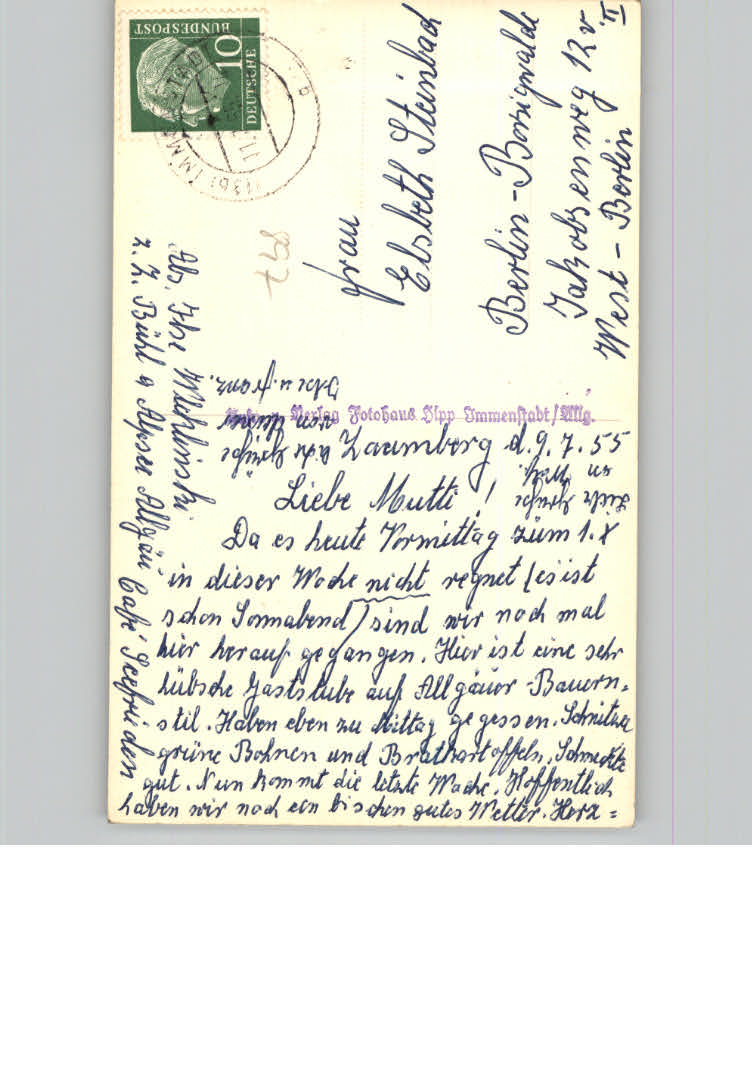 Zaumberg d. 9. 7. 55
Liebe Mutti!
Da es heute Vormittag zum 1. x
in dieser Woche nicht regnet (es ist
schon Sonnabend) sind wir noch mal
hier herauf gegangen. Hier ist eine sehr
hübsche Gaststube auf Allgäuer-Bauern=
stil. Haben eben zu Mittag gegessen. Schnitzel
grüne Bohnen und Bratkartoffeln, Schmeckte
gut. Nun kommt die letzte Woche. Hoffentlich
haben wir noch ein bischen gutes Wetter. Herz=
liche Grüße
Verlag Fotohaus Hipp Immenstadt/Allg.
Frau
Elsbeth Steinbach
Berlin-Borsigwalde
Jakobsenweg 12 v II
West-Berlin
Abs. Ilse
z. Z. Bühl a Alpsee Allgäu Café Seefrieden
DEUTSCHE
BUNDESPOST
10
(13b) IMMENSTADT
b